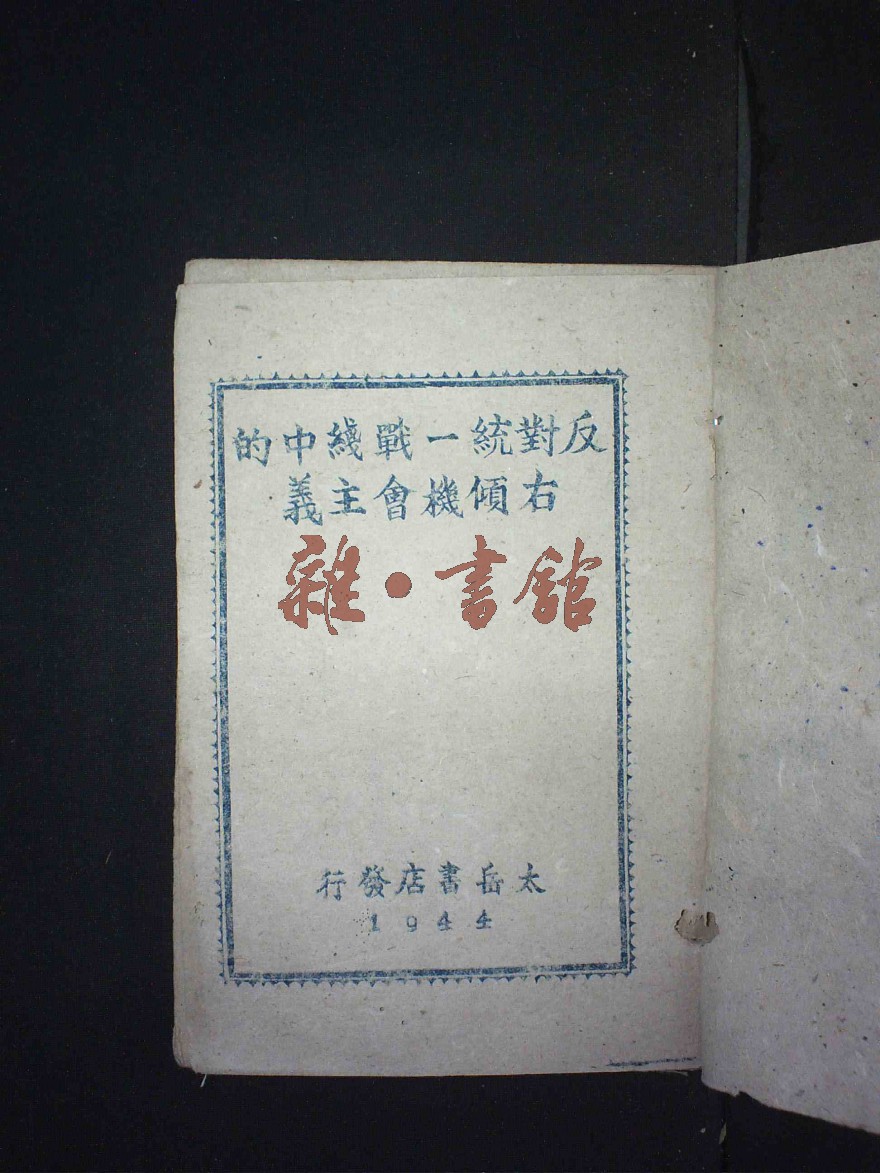 反對統一戰綫中的
右傾機會主義
雜·書館
太岳書店發行
1944